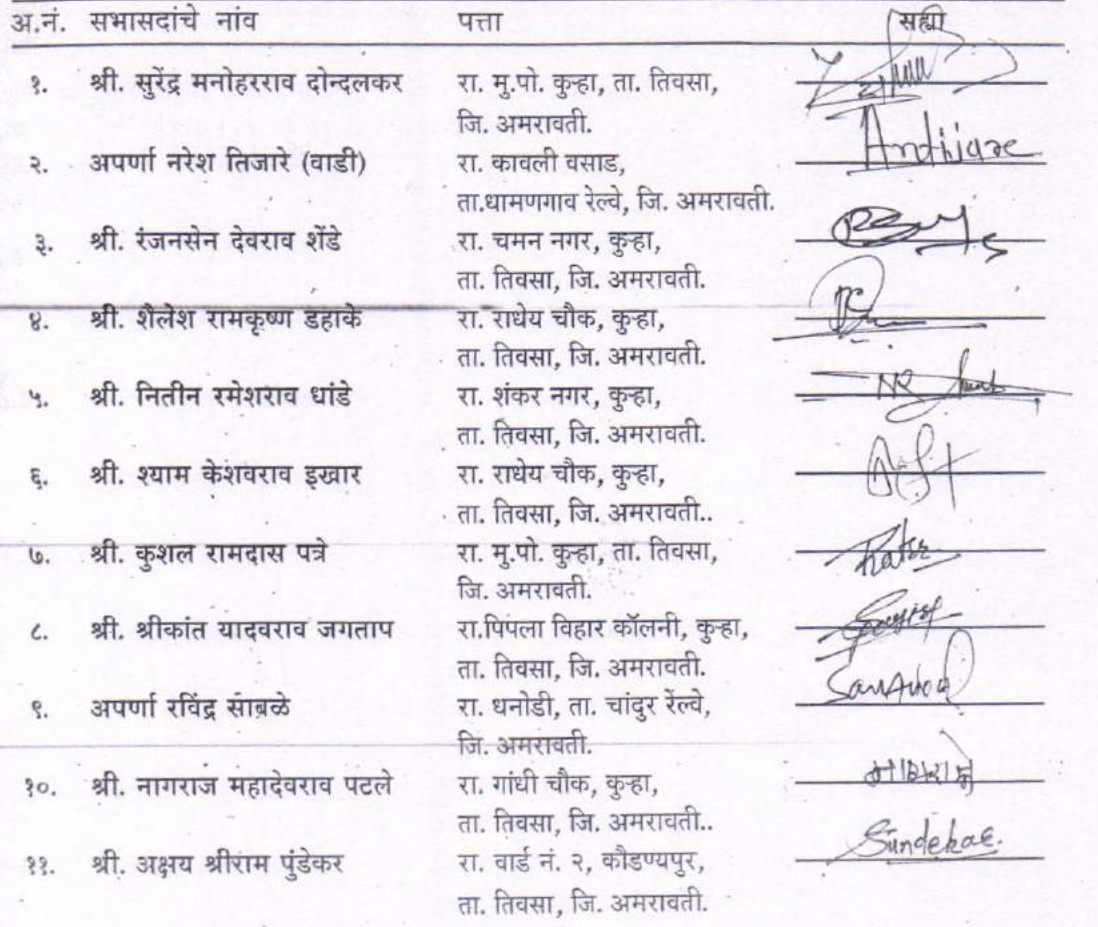 अ.नं. सभासदांचे नांव पत्ता सह्या
१. श्री. सुरेंद्र मनोहरराव दोन्दलकर रा. मु.पो. कुऱ्हा, ता. तिवसा,
जि. अमरावती.
२. अपर्णा नरेश तिजारे (वाडी) रा. कावली वसाड,
ता.धामणगाव रेल्वे, जि. अमरावती.
३. श्री. रंजनसेन देवराव शेंडे रा. चमन नगर, कुऱ्हा,
ता. तिवसा, जि. अमरावती.
४. श्री. शैलेश रामकृष्ण डहाके रा. राधेय चौक, कुऱ्हा,
ता. तिवसा, जि. अमरावती.
५. श्री. नितीन रमेशराव धांडे रा. शंकर नगर, कुऱ्हा,
ता. तिवसा, जि. अमरावती.
६. श्री. श्याम केशवराव इखार रा. राधेय चौक, कुऱ्हा,
ता. तिवसा, जि. अमरावती..
७. श्री. कुशल रामदास पत्रे रा. मु.पो. कुऱ्हा, ता. तिवसा,
जि. अमरावती.
८. श्री. श्रीकांत यादवराव जगताप रा.पिपला विहार कॉलनी, कुऱ्हा,
ता. तिवसा, जि. अमरावती.
९. अपर्णा रविंद्र साबळे रा. धनोडी, ता. चांदुर रेल्वे,
जि. अमरावती.
१०. श्री. नागराज महादेवराव पटले रा. गांधी चौक, कुऱ्हा,
ता. तिवसा, जि. अमरावती..
११. श्री. अक्षय श्रीराम पुंडेकर रा. वार्ड नं. २, कौडण्यपुर,
ता. तिवसा, जि. अमरावती.